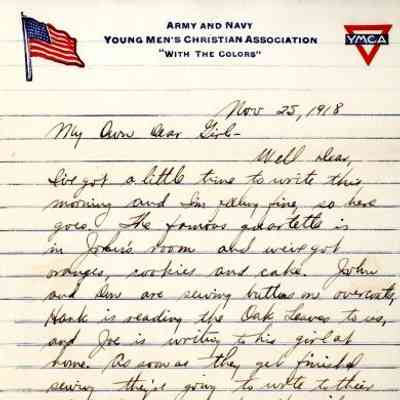 ARMY AND NAVY
YOUNG MEN'S CHRISTIAN ASSOCIATION
"WITH THE COLORS"
YMCA
Nov 25, 1918
My Own Dear Girl-
Well dear,
I've got a little time to write this
morning and I'm feeling fine, so here
goes. The famous quartette is
in John's room and we've got
oranges, cookies and cake. John
and are sewing buttons on overcoats,
Hank is reading the Oak Leaves to us,
and Joe is writing to his girl at
home. As soon as they get finished
sewing they're going to write to their